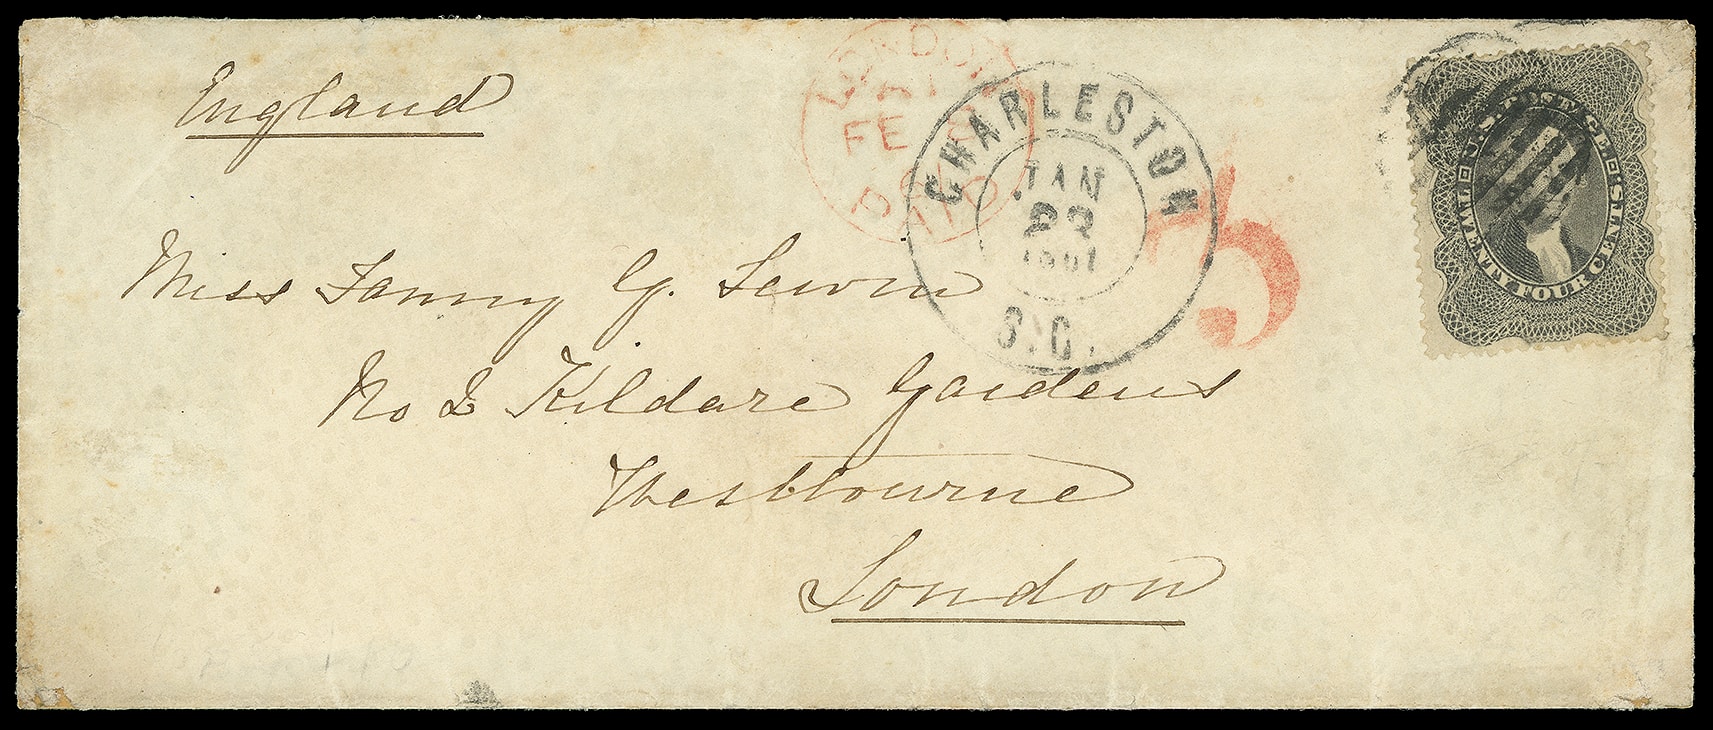 England
LONDON
FE
PAID
CHARLESTON
JAN
1861
S.C.
3
U.S. POSTAGE.
TWENTY FOUR CENTS.
Miss Fanny G. Lewin
No 2 Kildare Gardens
Westbourne
London